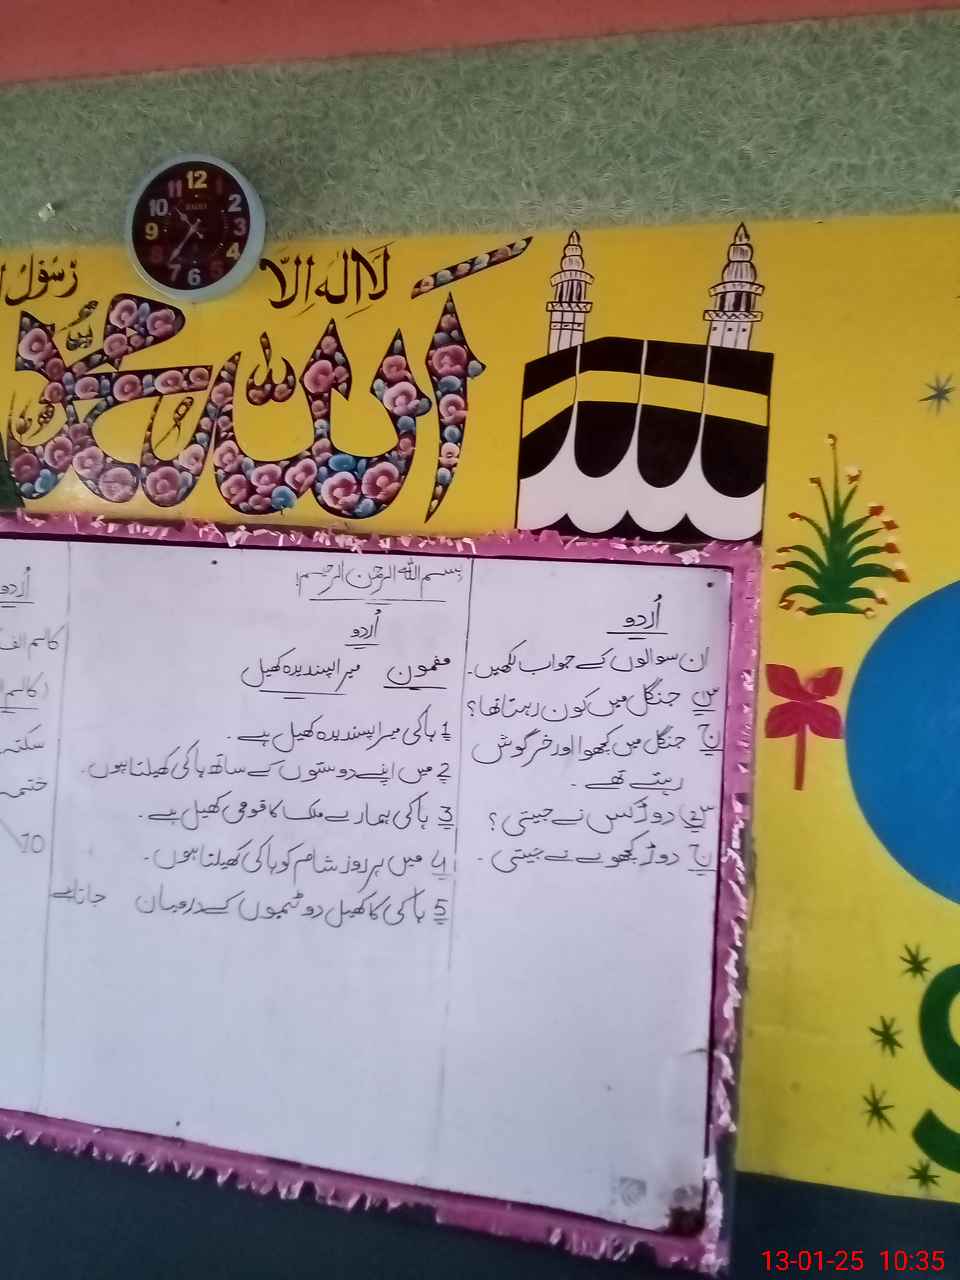 12
11
1
10
2
9
3
8
4
7
5
6
لَا اِلٰهَ اِلَّا
رَسُوْلُ
اَللہ
محمد
بسم اللہ الرحمٰن الرحیم
اُردو
ان سوالوں کے جواب لکھیں۔
س جنگل میں کون رہتا تھا؟
ج جنگل میں کچھوا اور خرگوش
رہتے تھے۔
س2 دوڑ کس نے جیتی؟
ج دوڑ کچھوے نے جیتی۔
اُردو
مضمون میرا پسندیدہ کھیل
1 ہاکی میرا پسندیدہ کھیل ہے۔
2 میں اپنے دوستوں کے ساتھ ہاکی کھیلتا ہوں۔
3 ہاکی ہمارے ملک کا قومی کھیل ہے۔
4 میں ہر روز شام کو ہاکی کھیلتا ہوں۔
5 ہاکی کا کھیل دو ٹیموں کے درمیان جاتا ہے
اُردو
کالم الف
سکتہ
ختمہ
10
S
13-01-25 10:35